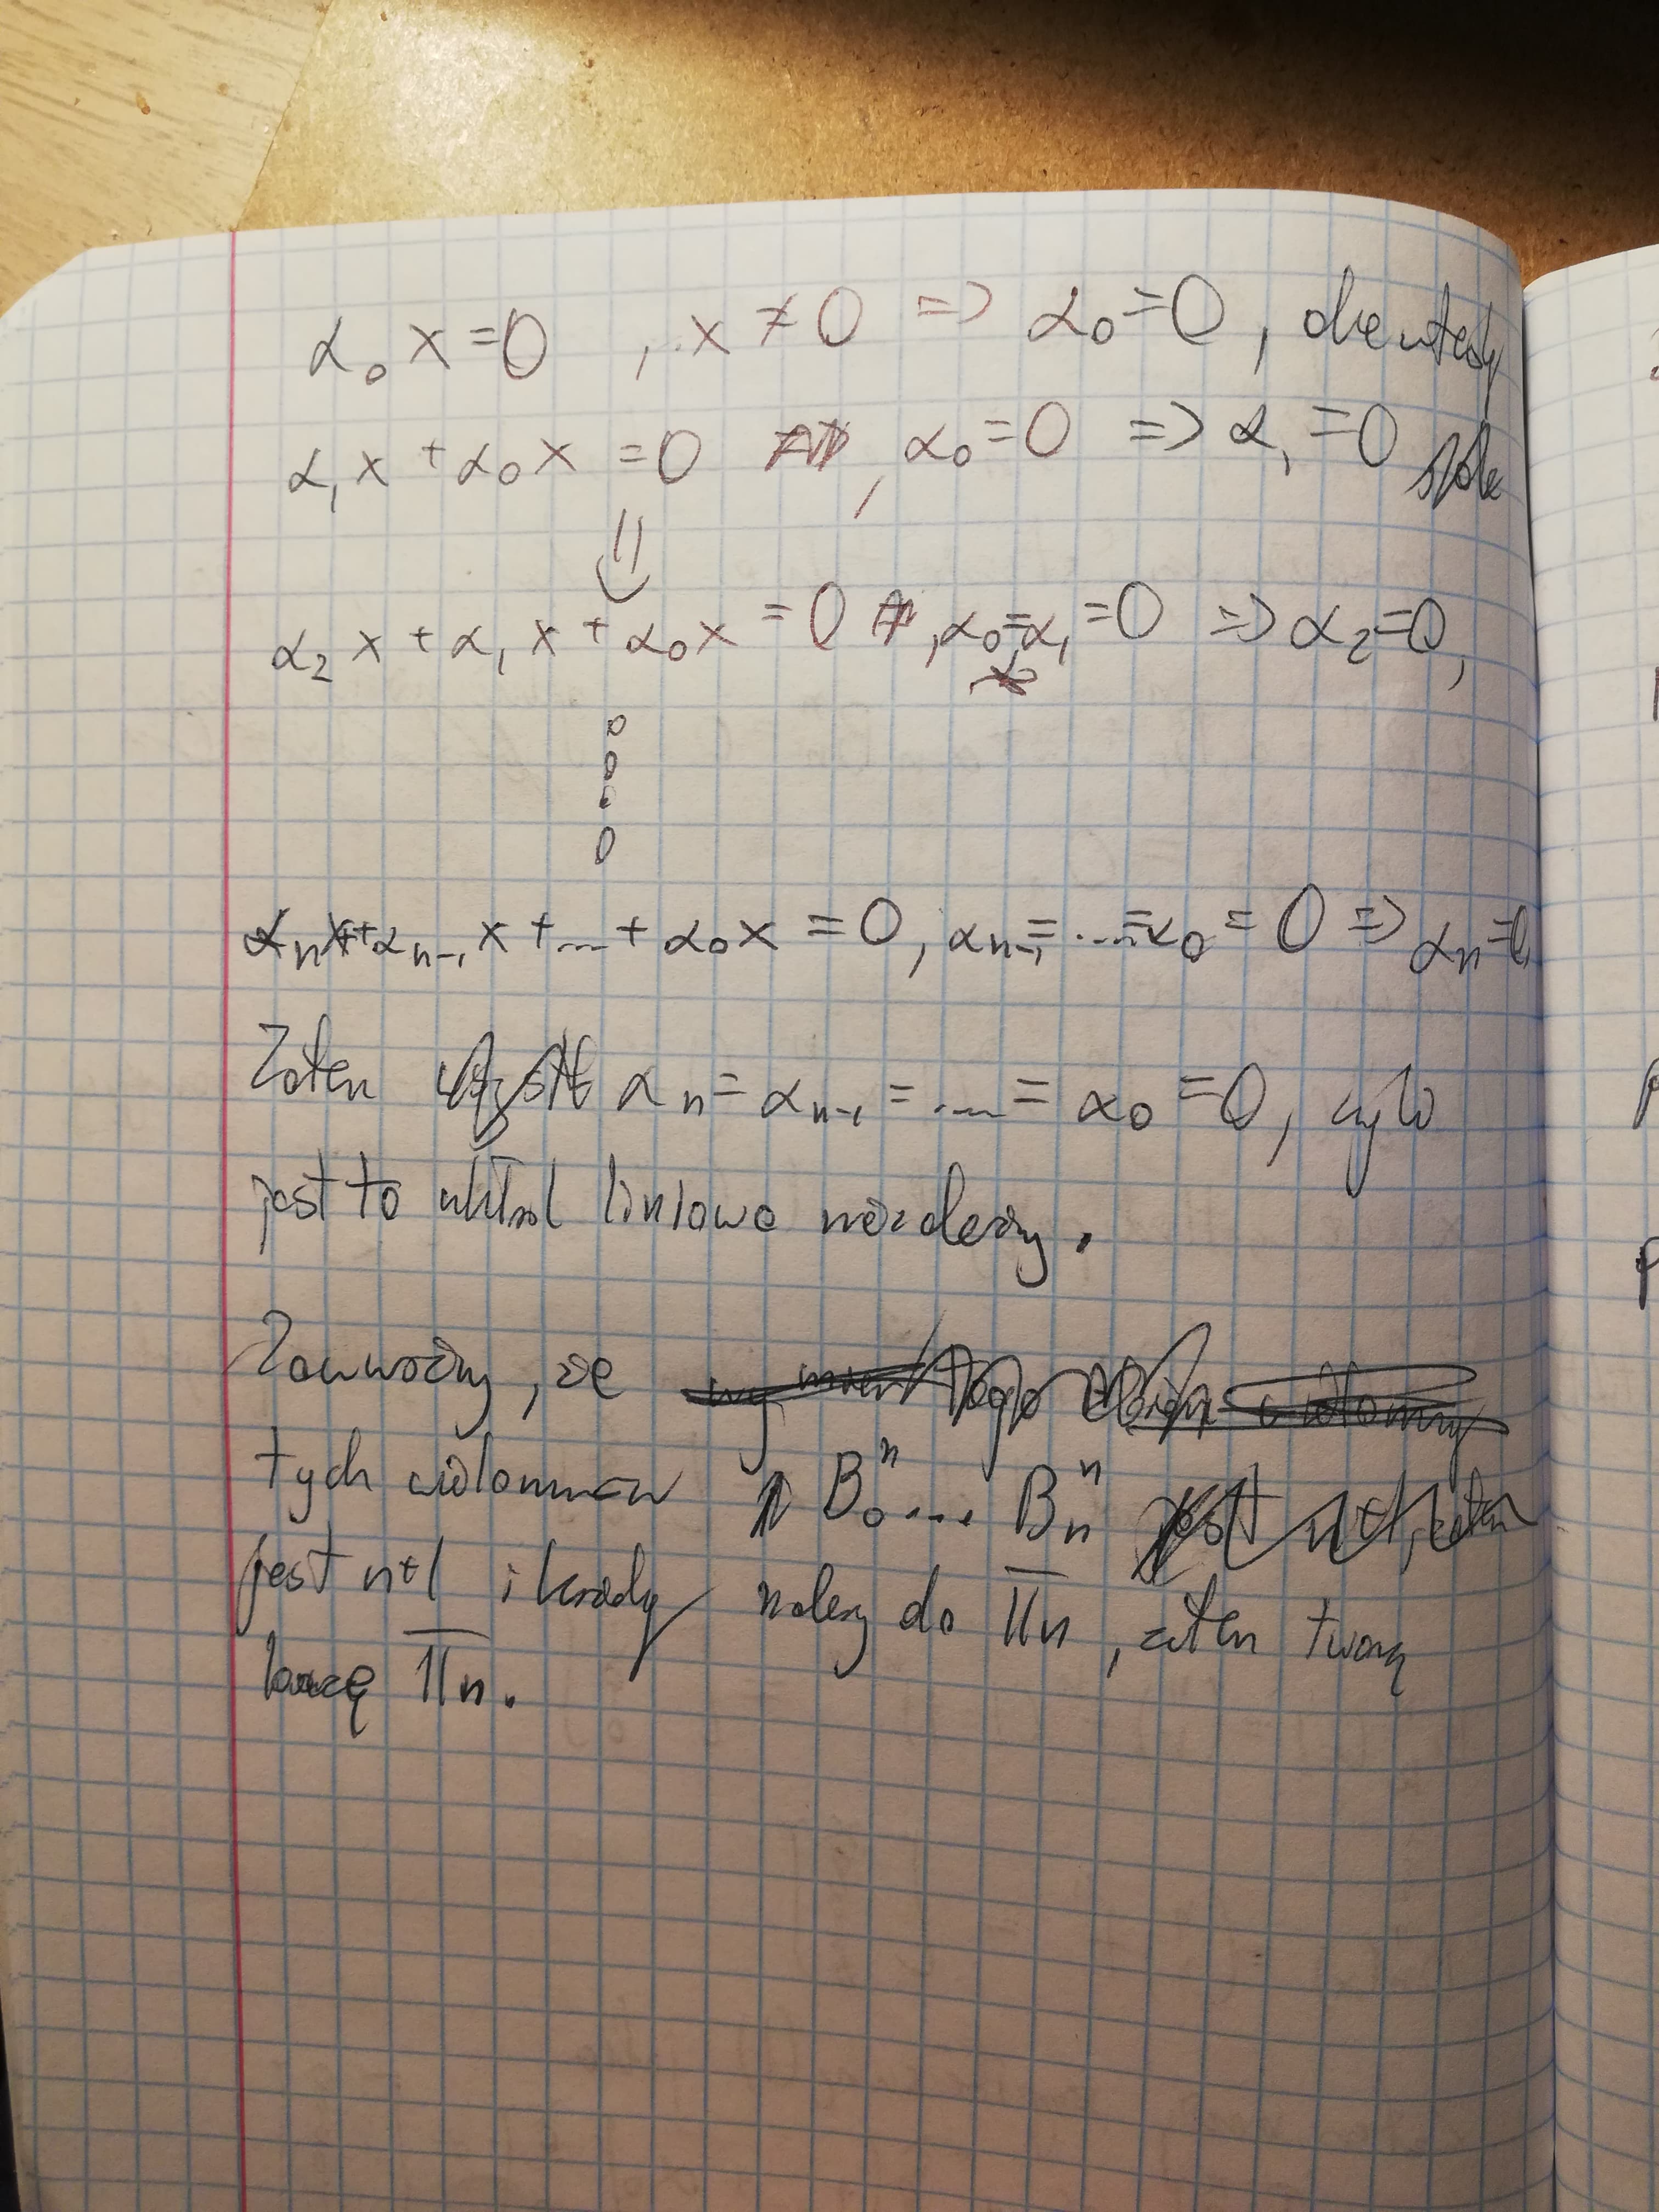 α₀x = 0 , x ≠ 0 => α₀ = 0 , ale wtedy
α₁x + α₀x = 0 , α₀ = 0 => α₁ = 0
⇓
α₂x + α₁x + α₀x = 0 , α₀ = α₁ = 0 => α₂ = 0,
αₙx + αₙ₋₁x + ... + α₀x = 0, αₙ₋₁ = ... = α₀ = 0 => αₙ = 0
Zatem αₙ = αₙ₋₁ = .... = α₀ = 0, czyli
jest to układ liniowo niezależny.
Zauważmy, że
tych wielomianów B₀ⁿ ... Bₙⁿ
jest n+1 i każdy należy do Πₙ, zatem tworzą
bazę Πₙ.